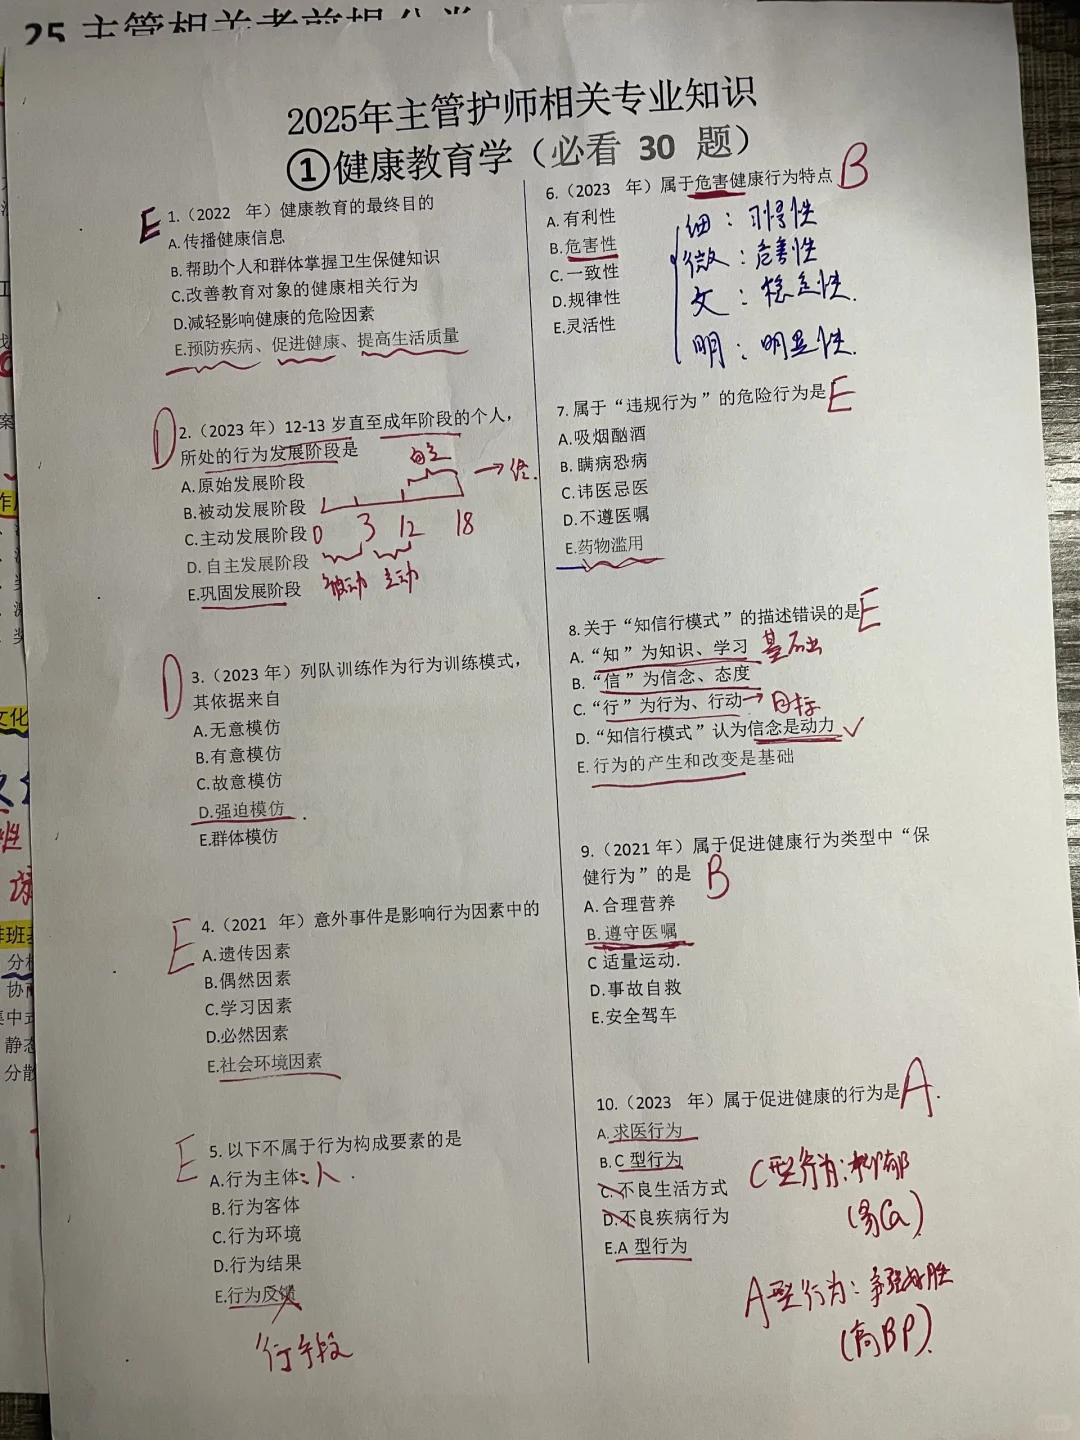 2025年主管护师相关专业知识
①健康教育学（必看 30 题）
E 1.（2022 年）健康教育的最终目的
A.传播健康信息
B.帮助个人和群体掌握卫生保健知识
C.改善教育对象的健康相关行为
D.减轻影响健康的危险因素
E.预防疾病、促进健康、提高生活质量
D 2.（2023 年）12-13 岁直至成年阶段的个人，
所处的行为发展阶段是
自主
A.原始发展阶段
B.被动发展阶段
C.主动发展阶段 0 3 12 18
D.自主发展阶段
E.巩固发展阶段 被动 主动
D 3.（2023 年）列队训练作为行为训练模式，
其依据来自
A.无意模仿
B.有意模仿
C.故意模仿
D.强迫模仿
E.群体模仿
E 4.（2021 年）意外事件是影响行为因素中的
A.遗传因素
B.偶然因素
C.学习因素
D.必然因素
E.社会环境因素
E 5.以下不属于行为构成要素的是
A.行为主体：人
B.行为客体
C.行为环境
D.行为结果
E.行为反馈
行手段
6.（2023 年）属于危害健康行为特点 B
A.有利性
B.危害性
C.一致性
D.规律性
E.灵活性
细：习惯性
微：危害性
女：稳定性.
明：明显性.
7.属于“违规行为”的危险行为是 E
A.吸烟酗酒
B.瞒病恐病
C.讳医忌医
D.不遵医嘱
E.药物滥用
8.关于“知信行模式”的描述错误的是 E
A.“知”为知识、学习 基础
B.“信”为信念、态度
C.“行”为行为、行动→目标
D.“知信行模式”认为信念是动力 ✓
E.行为的产生和改变是基础
9.（2021 年）属于促进健康行为类型中“保
健行为”的是 B
A.合理营养
B.遵守医嘱
C 适量运动.
D.事故自救
E.安全驾车
10.（2023 年）属于促进健康的行为是 A.
A.求医行为
B.C 型行为
C.不良生活方式
D.不良疾病行为
E.A 型行为
C型行为：抑郁
(易Ca)
A型行为：争强好胜
(高BP).